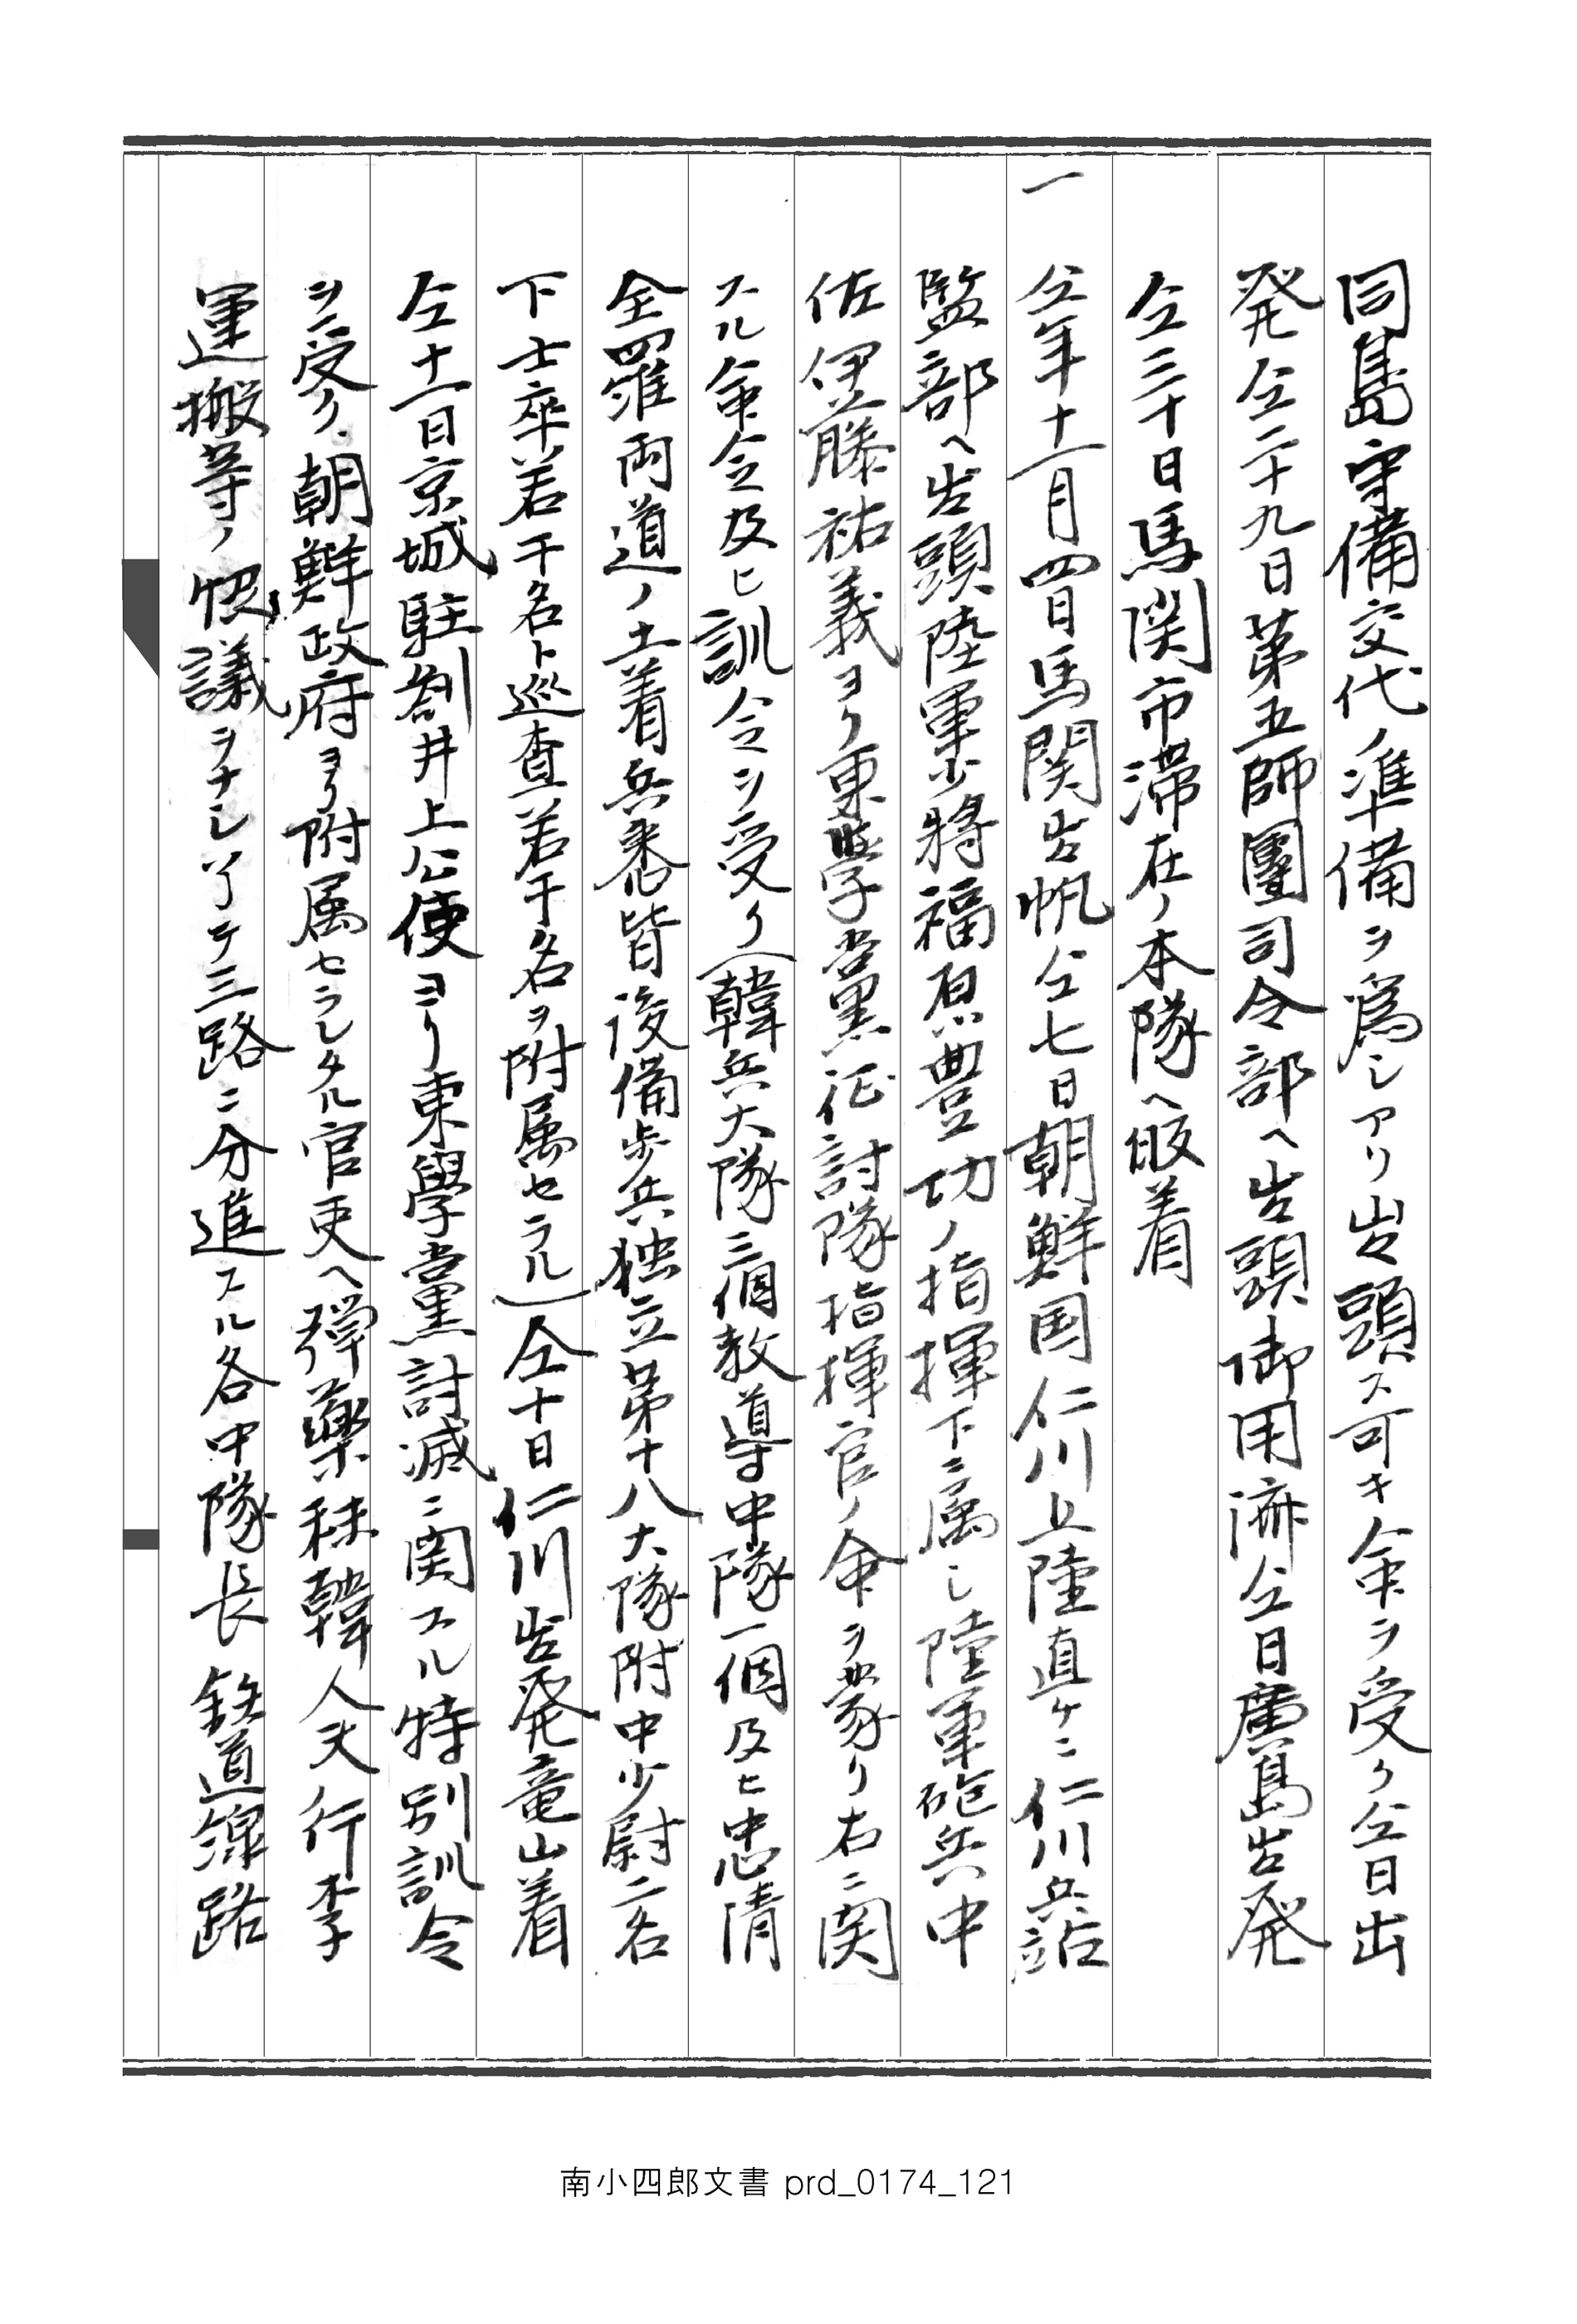 同島守備交代ノ準備ヲ爲シアリ出頭ス可キ命ヲ受ク仝日出
発仝二十九日第五師團司令部ヘ出頭御用済仝日廣島出発
仝三十日馬関市滞在ノ本隊ヘ皈着
一 仝年十一月四日馬関出帆仝七日朝鮮国仁川上陸直ケニ仁川兵站
監部ヘ出頭陸軍少将福原豊功ノ指揮下ニ属シ陸軍砲兵中
佐伊藤祐義ヨリ東學党黨征討隊指揮官ノ命ヲ蒙リ右ニ関
スル命令及ヒ訓令ヲ受ク(韓兵大隊三個教導中隊一個及ヒ忠清
全羅両道ノ土着兵悉皆後備歩兵独立第十八大隊附中少尉二名
下士卒若干名ト巡査若干名ヲ附属セラル)仝十日仁川出発竜山着
仝十一日京城駐劄井上公使ヨリ東學黨討滅ニ関スル特別訓令
ヲ受ク朝鮮政府ヨリ附属セラレタル官吏ヘ弾薬秣韓人夫行李
運搬等ノ協議ヲナシ了テ三路ニ分進スル各中隊長鉄道線路
南小四郎文書 prd_0174_121